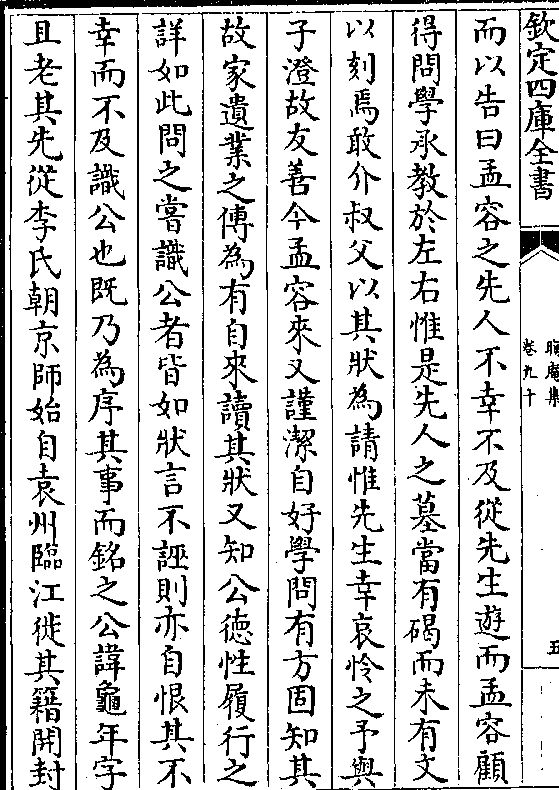 欽定四庫全書
晦庵集
卷九十
五
而以告曰孟容之先人不幸不及從先生遊而孟容顧
得問學承教於左右惟是先人之墓當有碣而未有文
以刻焉敢介叔父以其狀為請惟先生幸哀怜之予與
子澄故友善今孟容來又謹潔自好學問有方固知其
故家遺業之傳為有自來讀其狀又知公德性履行之
詳如此問之嘗識公者皆如狀言不誣則亦自恨其不
幸而不及識公也既乃為序其事而銘之公諱龜年字
且老其先從李氏朝京師始自袁州臨江徙其籍開封